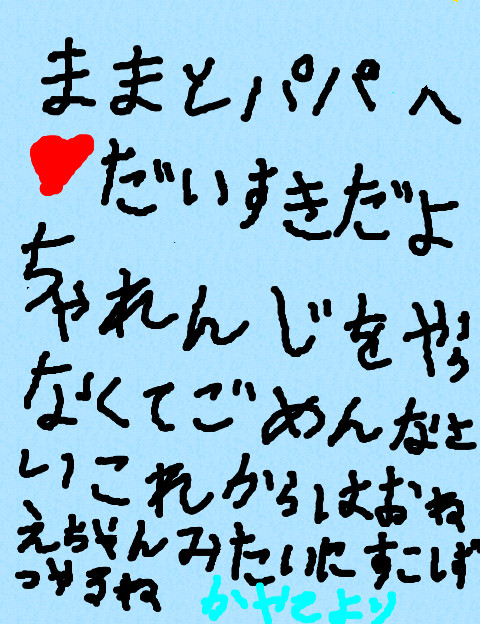 ままとパパへ
だいすきだよ
ちゃれんじをやら
なくてごめんなさ
いこれからはおね
えちゃんみたいにすこしず
つやるね
かやてより